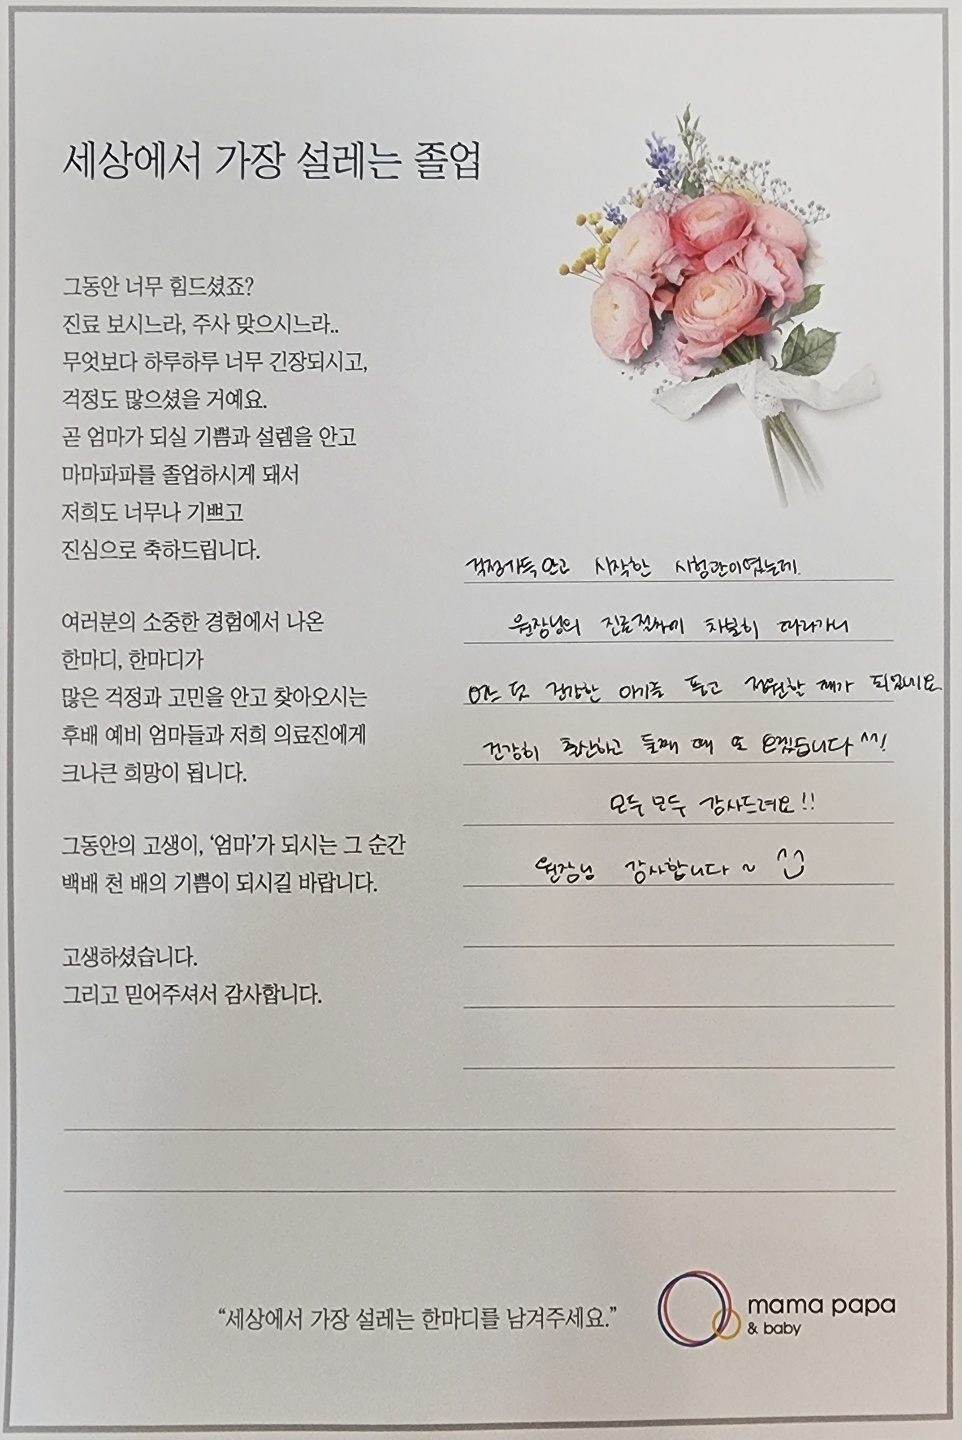 세상에서 가장 설레는 졸업
그동안 너무 힘드셨죠?
진료 보시느라, 주사 맞으시느라..
무엇보다 하루하루 너무 긴장되시고,
걱정도 많으셨을 거예요.
곧 엄마가 되실 기쁨과 설렘을 안고
마마파파를 졸업하시게 돼서
저희도 너무나 기쁘고
진심으로 축하드립니다.
여러분의 소중한 경험에서 나온
한마디, 한마디가
많은 걱정과 고민을 안고 찾아오시는
후배 예비 엄마들과 저희 의료진에게
크나큰 희망이 됩니다.
그동안의 고생이, ‘엄마’가 되시는 그 순간
백배 천 배의 기쁨이 되시길 바랍니다.
고생하셨습니다.
그리고 믿어주셔서 감사합니다.
걱정가득 안고 시작한 시험관이였는데.
원장님의 진료절차에 차분히 따라가니
어느 덧 건강한 아기를 품고 전원할 때가 되었네요
건강히 출산하고 둘째 때 또 오겠습니다 ^^!
모두 모두 감사드려요!!
원장님 감사합니다~
“세상에서 가장 설레는 한마디를 남겨주세요.”
mama papa
& baby